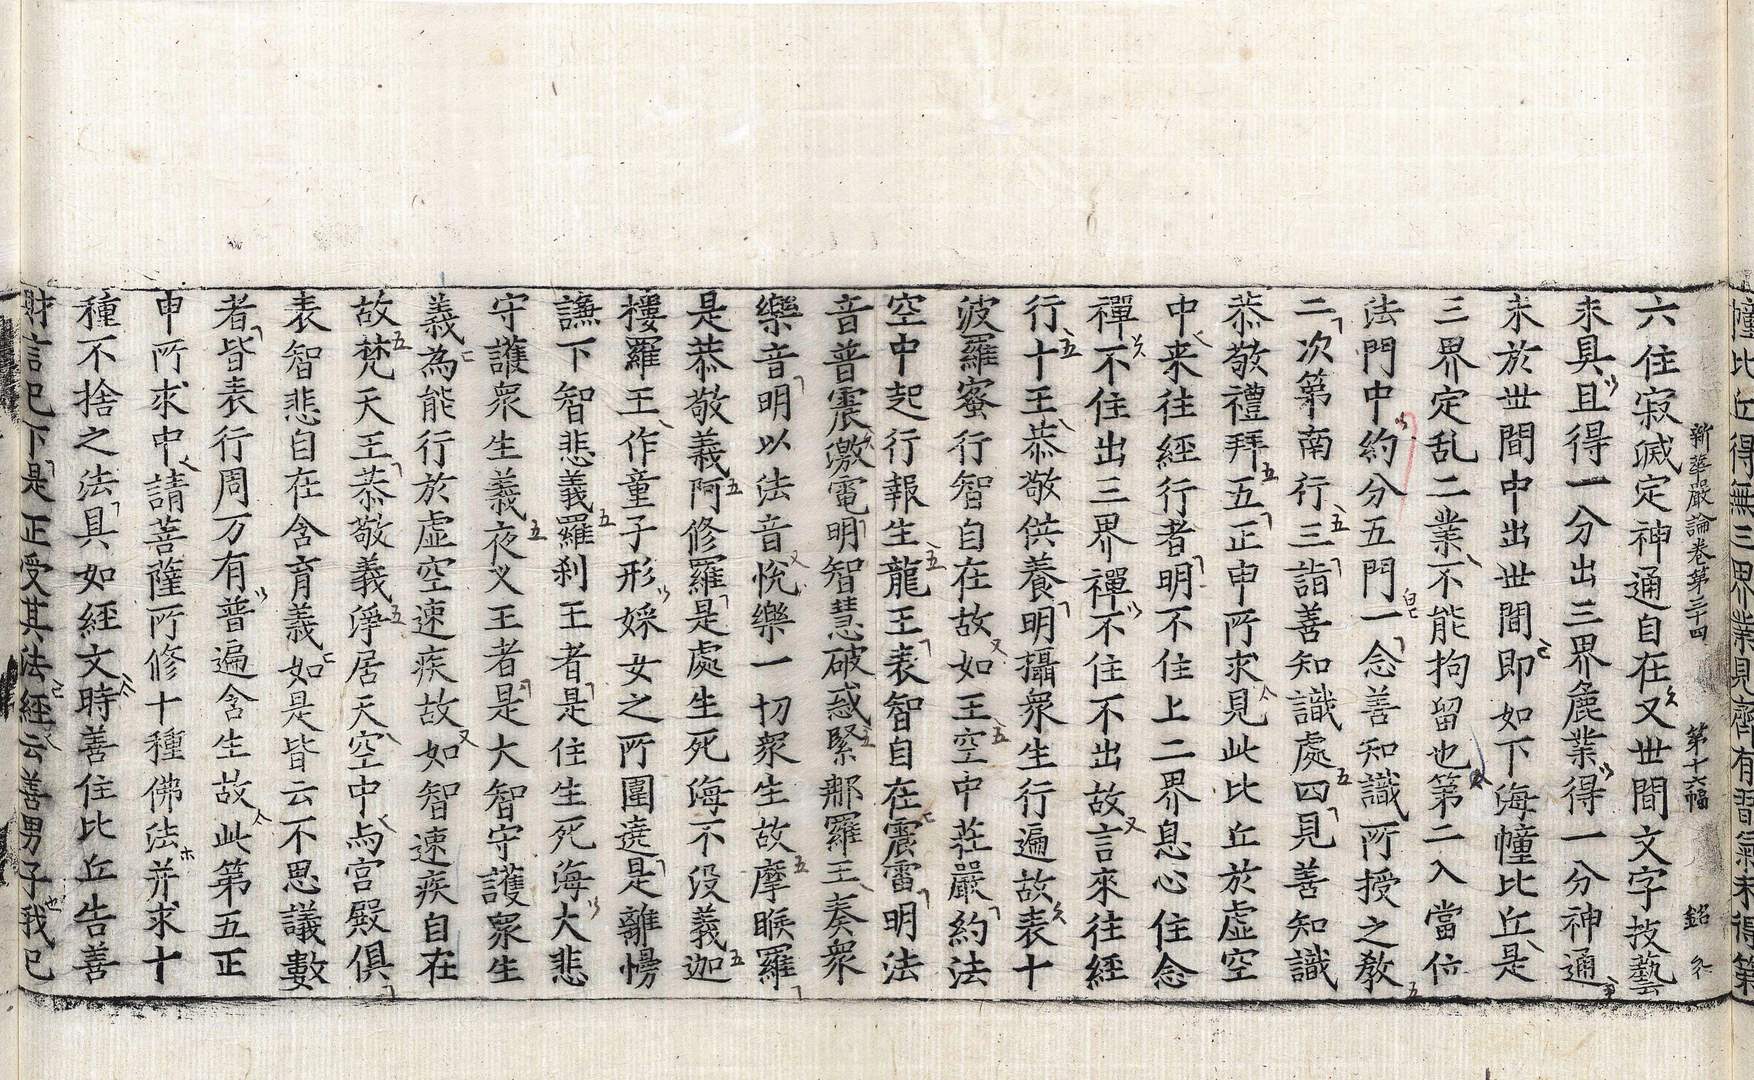 幢比丘得無三界業見齊有習氣未得第
新華嚴論卷第三十四　第十六幅　銘
六住寂滅定神通自在又世間文字技藝
未具且得一分出三界麁業得一分神通
未於世間中出世間即如下海幢比丘是
三界定乱二業不能拘留也第二入當位
法門中約分五門一念善知識所授之教
二次第南行三詣善知識處四見善知識
恭敬禮拜五正申所求見此比丘於虛空
中来往經行者明不住上二界息心住念
禪不住出三界禪不住不出故言來往經
行十王恭敬供養明攝衆生行遍故表十
波羅蜜行智自在故如王空中莊嚴約法
空中起行報生龍王表智自在震雷明法
音普震激電明智慧破惑緊那羅王奏衆
樂音明以法音悅樂一切衆生故摩睺羅
是恭敬義阿修羅是處生死海不没義迦
樓羅王作童子形婇女之所圍遶是離慢
謙下智悲義羅刹王者是住生死海大悲
守護衆生義夜义王者是大智守護衆生
義為能行於虛空速疾故如智速疾自在
故梵天王恭敬義淨居天空中与宮殿俱
表智悲自在含育義如是皆云不思議數
者皆表行周万有普遍含生故此第五正
申所求中請菩薩所修十種佛法并求十
種不捨之法具如經文時善住比丘告善
財言已下是正受其法經云善男子我已